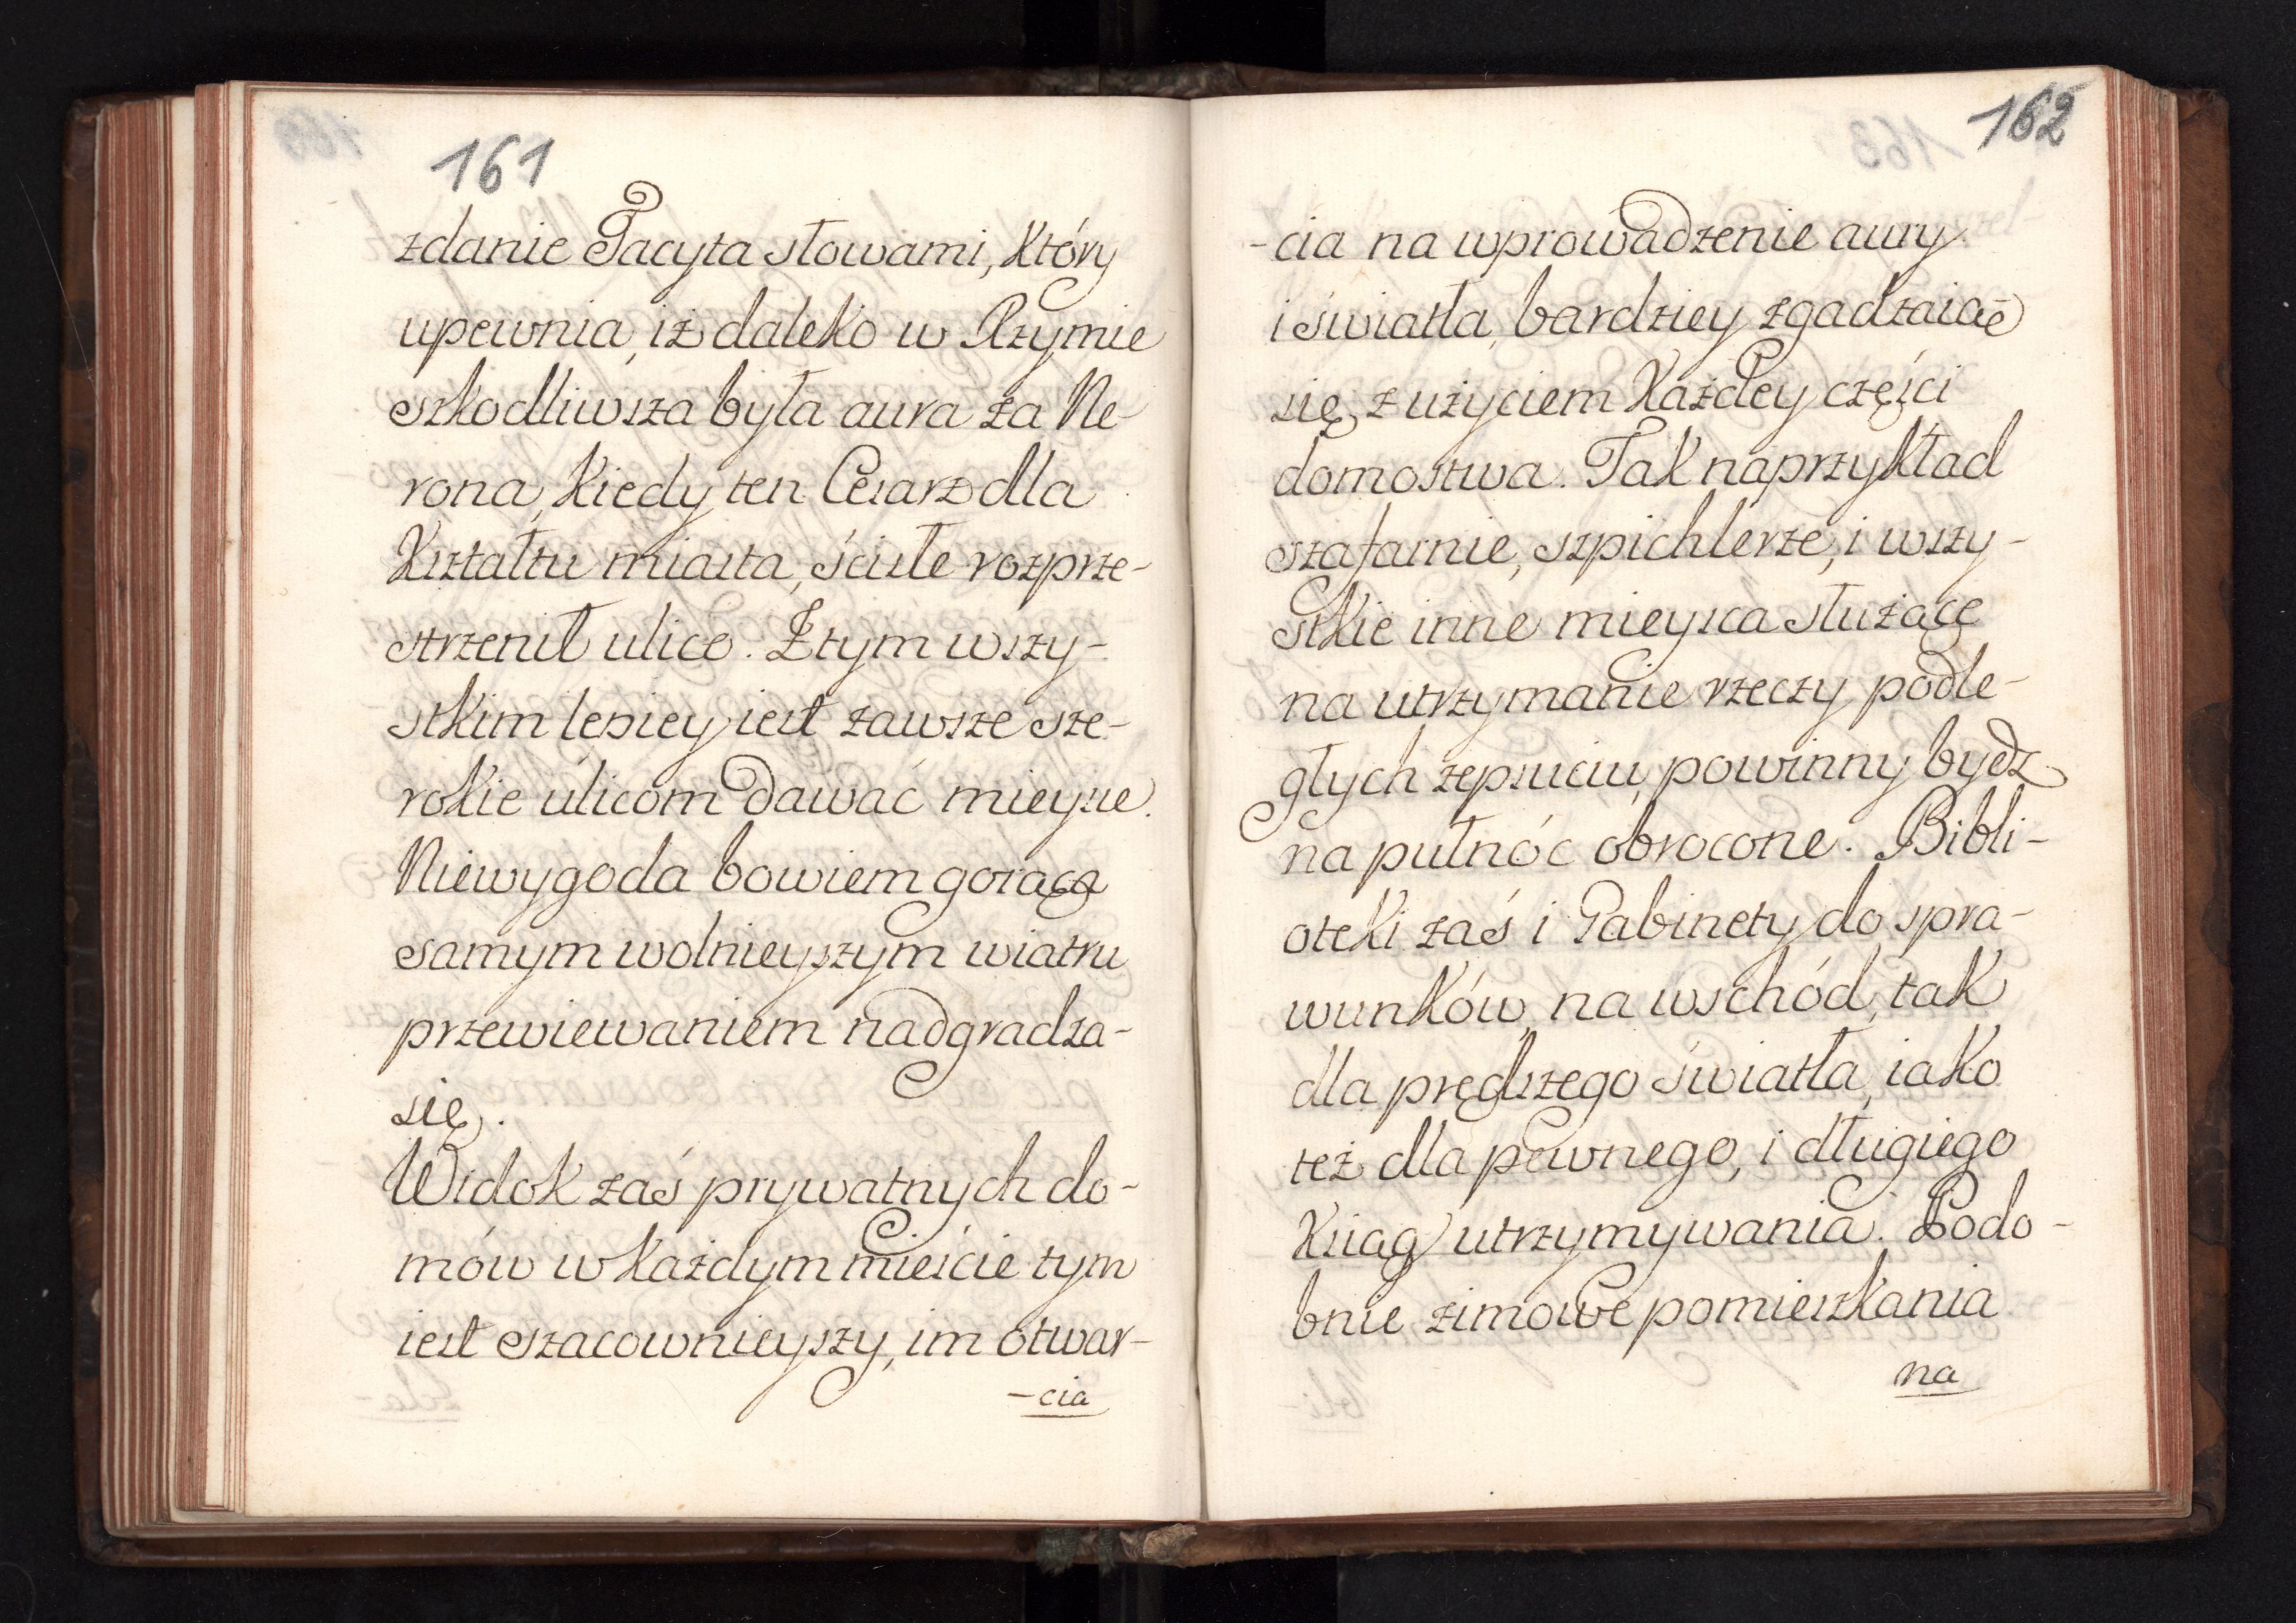 161
zdanie Tacyta słowami, który
upewnia, iż daleko w Rzymie
szkodliwsza była aura za Ne-
rona, kiedy ten Cesarz dla
Kształtu miasta, ściśle rozprze-
strzenił ulice. Z tym wszy-
stkim lepiey iest zawsze sze-
rokie ulicom dawać mieysce.
Niewygoda bowiem gorąca
samym wolnieyszym wiatru
przewiewaniem nadgradza-
się.
Widok zaś prywatnych do-
mów w każdym mieście tym
iest szacownieyszy, im otwar-
-cia
162
-cia na wprowadzenie aury
i światła, bardziey zgadzaiące
się z użyciem każdey części
domostwa. Tak naprzykład
szafarnie, szpichlerze, i wszy-
stkie inne mieysca służące
na utrzymanie rzeczy podle-
głych zepsuciu, powinny bydz
na pułnóc obrocone. Bibli-
oteki zaś i Gabinety do spra-
wunków na wschód, tak
dla prędszego światła, iako
też dla pewnego, i długiego
Ksiąg utrzymywania. Podo-
bnie zimowe pomieszkania
na